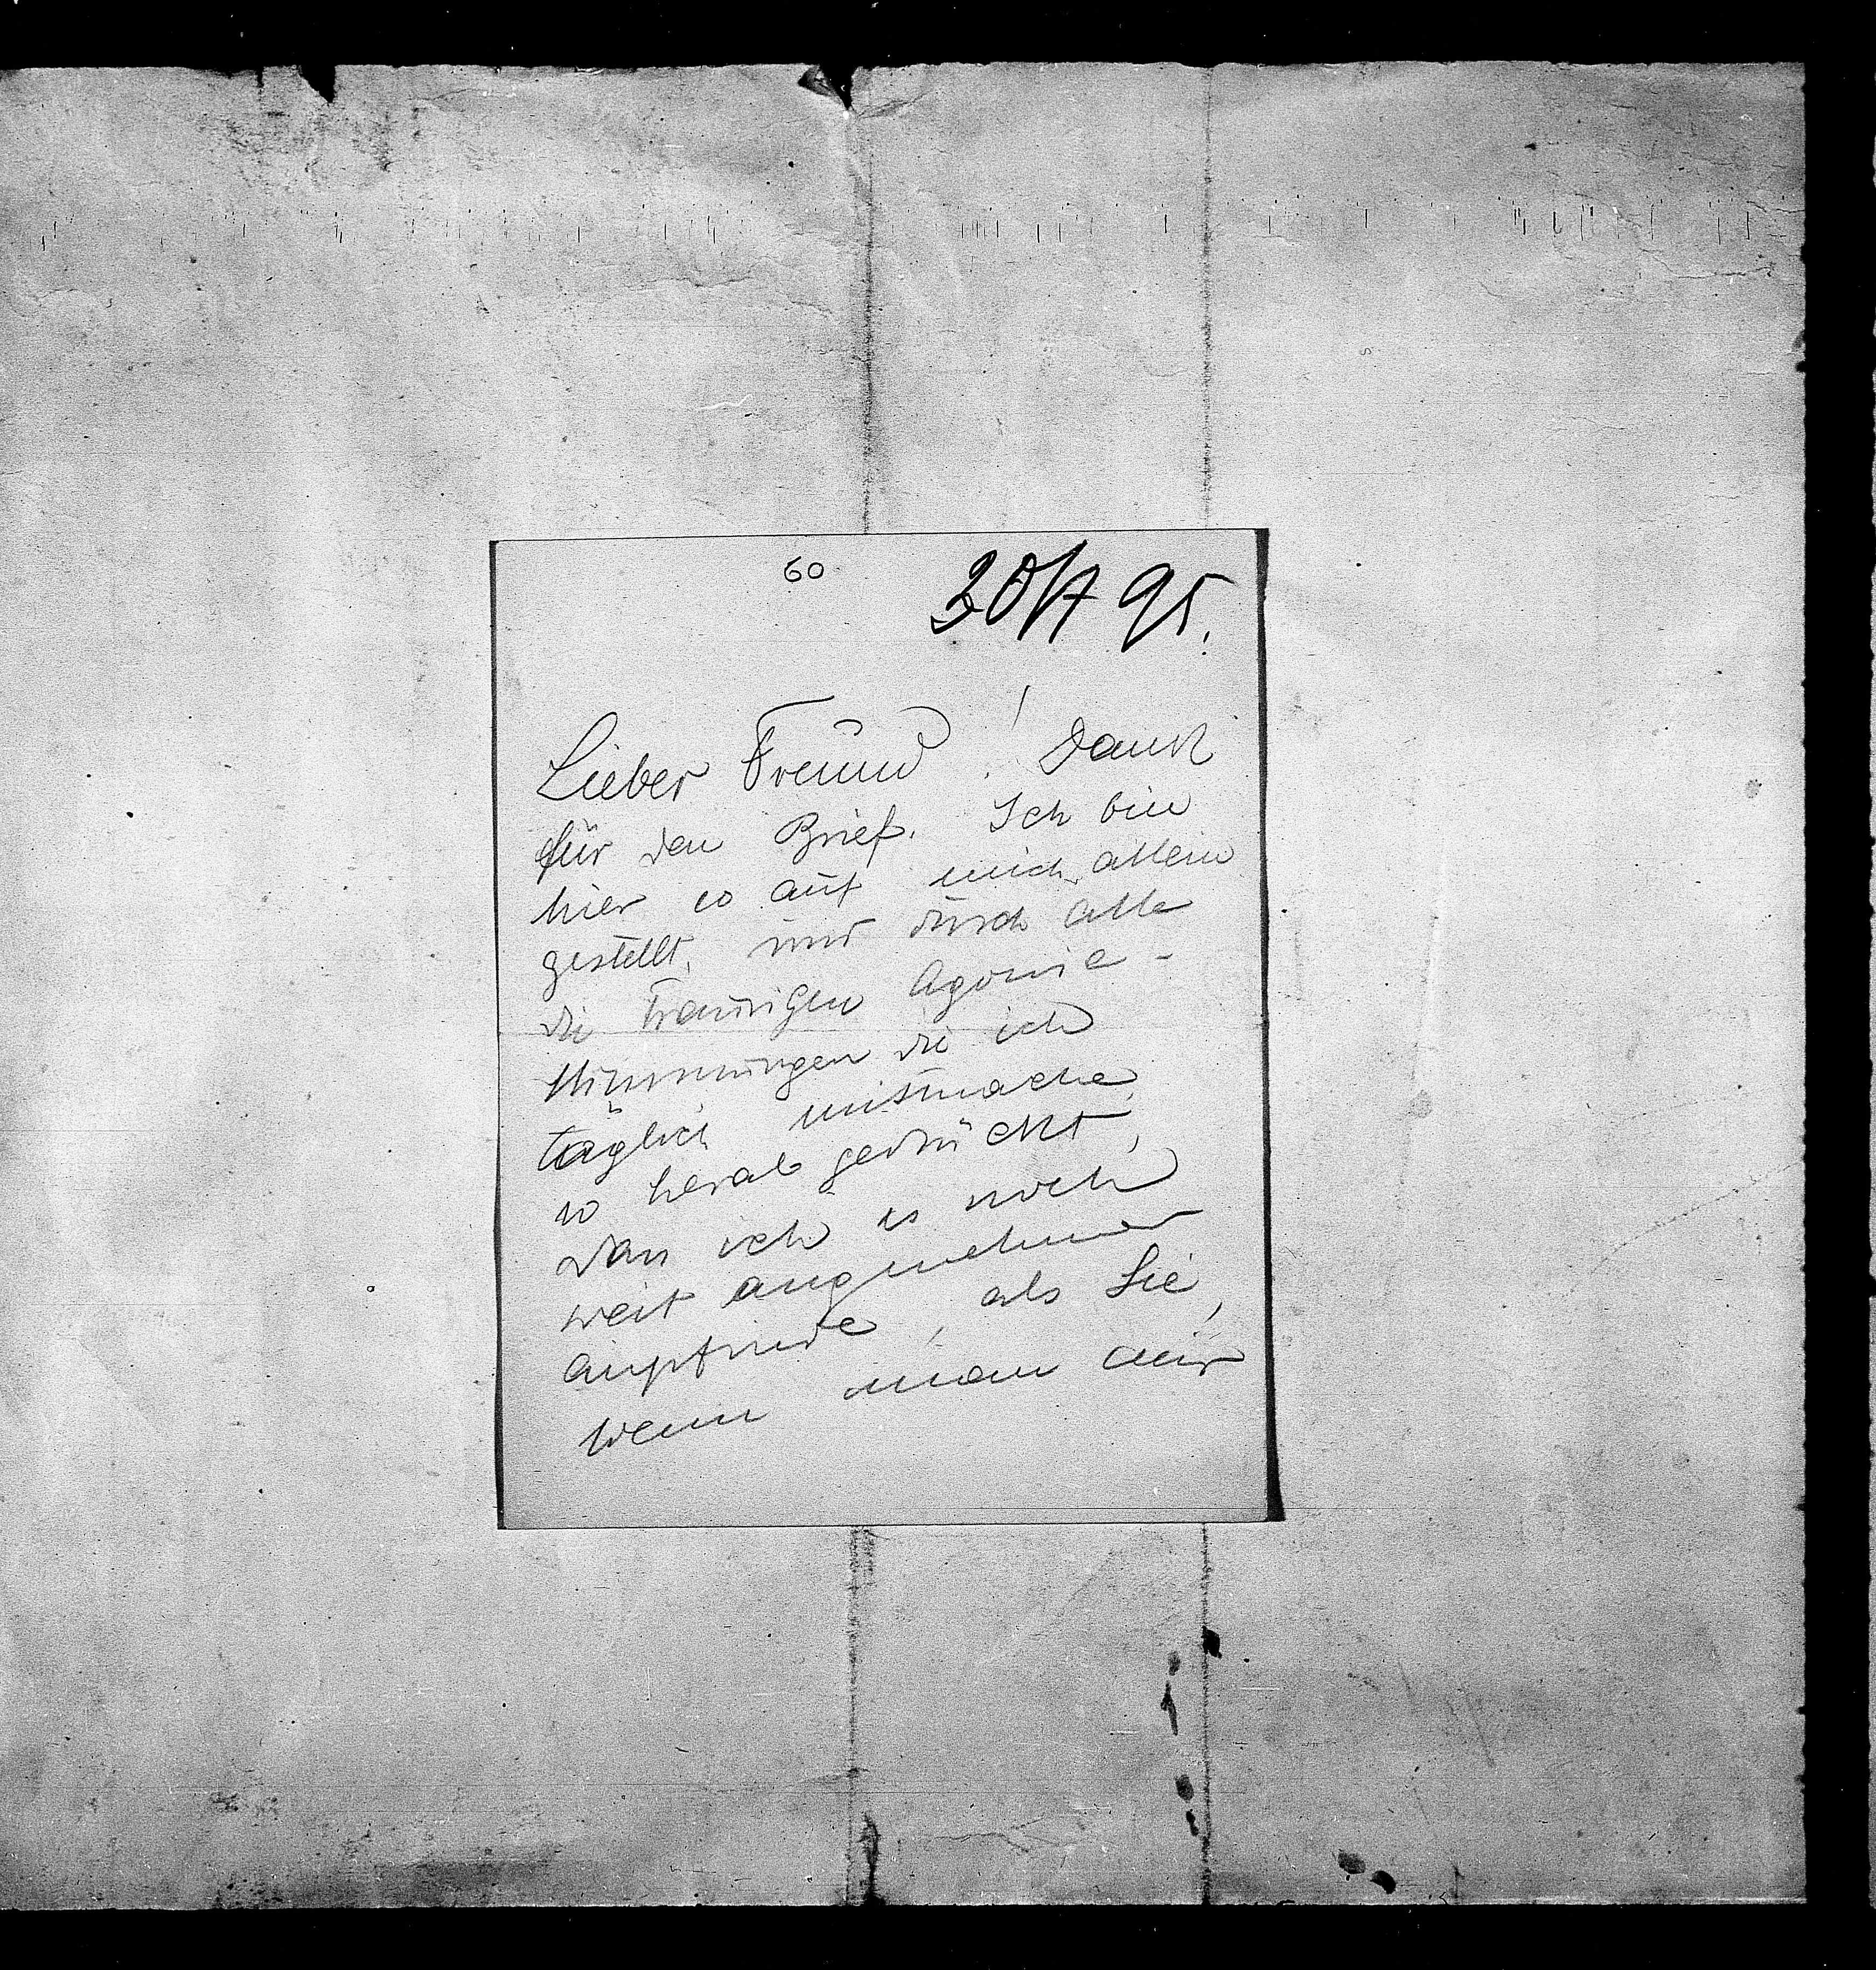 60
30/7 95.
Lieber Freund! Dank
für den Brief. Ich bin
hier so auf mich allein
gestellt, und durch alle
die traurigen Agonie-
stimmungen die ich
täglich mitmache,
so herab gedrückt,
dass ich es noch
weit angenehmer
empfinde, als Sie,
wenn man mir